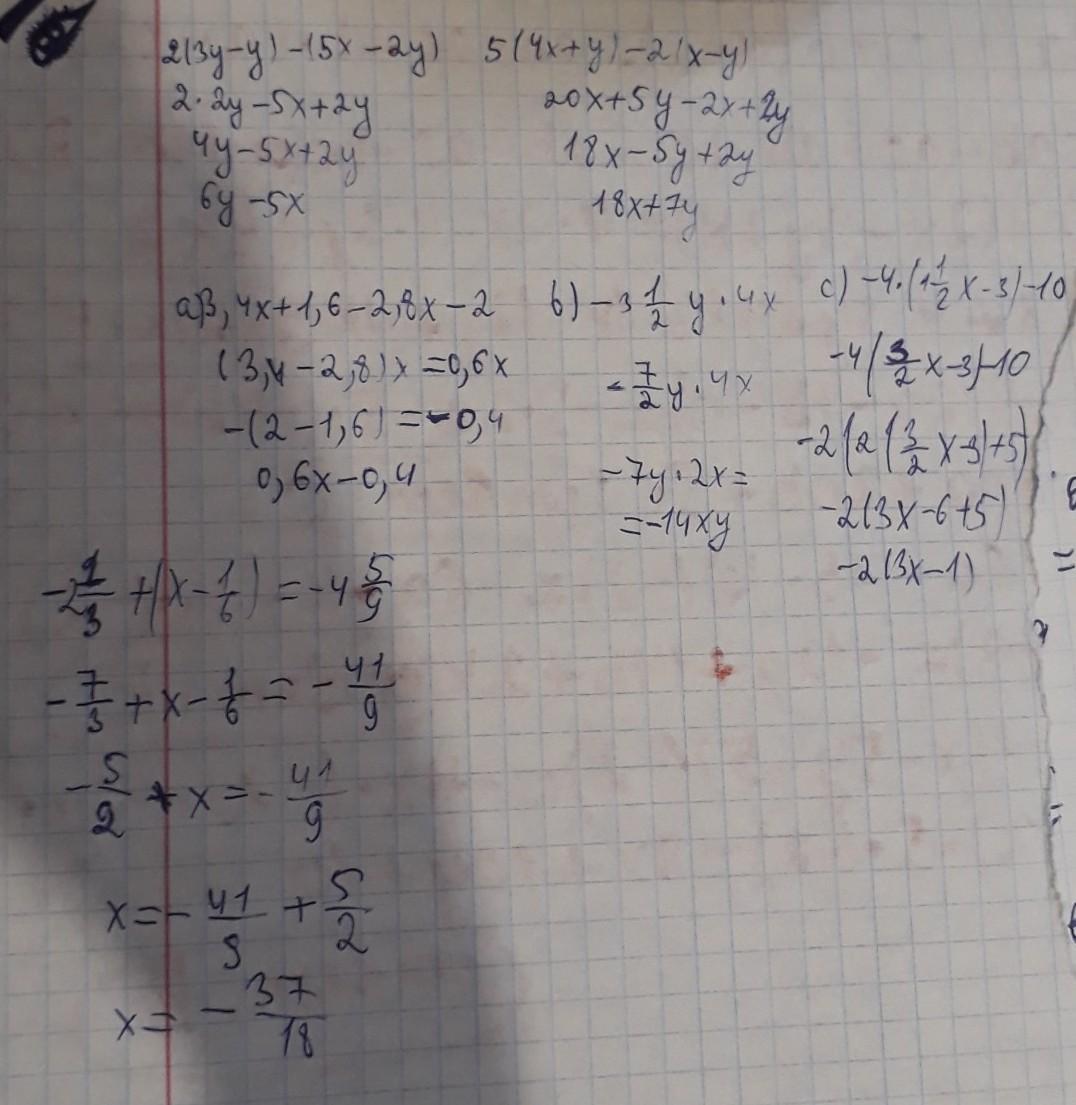 2(3y-y)-(5x-2y)
2·2y-5x+2y
4y-5x+2y
6y-5x
5(4x+y)-2(x-y)
20x+5y-2x+2y
18x-5y+2y
18x+7y
a)3,4x+1,6-2,8x-2
(3,4-2,8)x=0,6x
-(2-1,6)=-0,4
0,6x-0,4
b)-3 1/2 y·4x
-7/2 y·4x
-7y·2x=
=-14xy
c)-4·(1 1/2 x-3)-10
-4(3/2 x-3)-10
-2(2(3/2 x-3)+5)
-2(3x-6+5)
-2(3x-1)
-2 1/3+(x-1/6)=-4 5/9
-7/3+x-1/6=-41/9
-5/2+x=-41/9
x=-41/9+5/2
x=-37/18